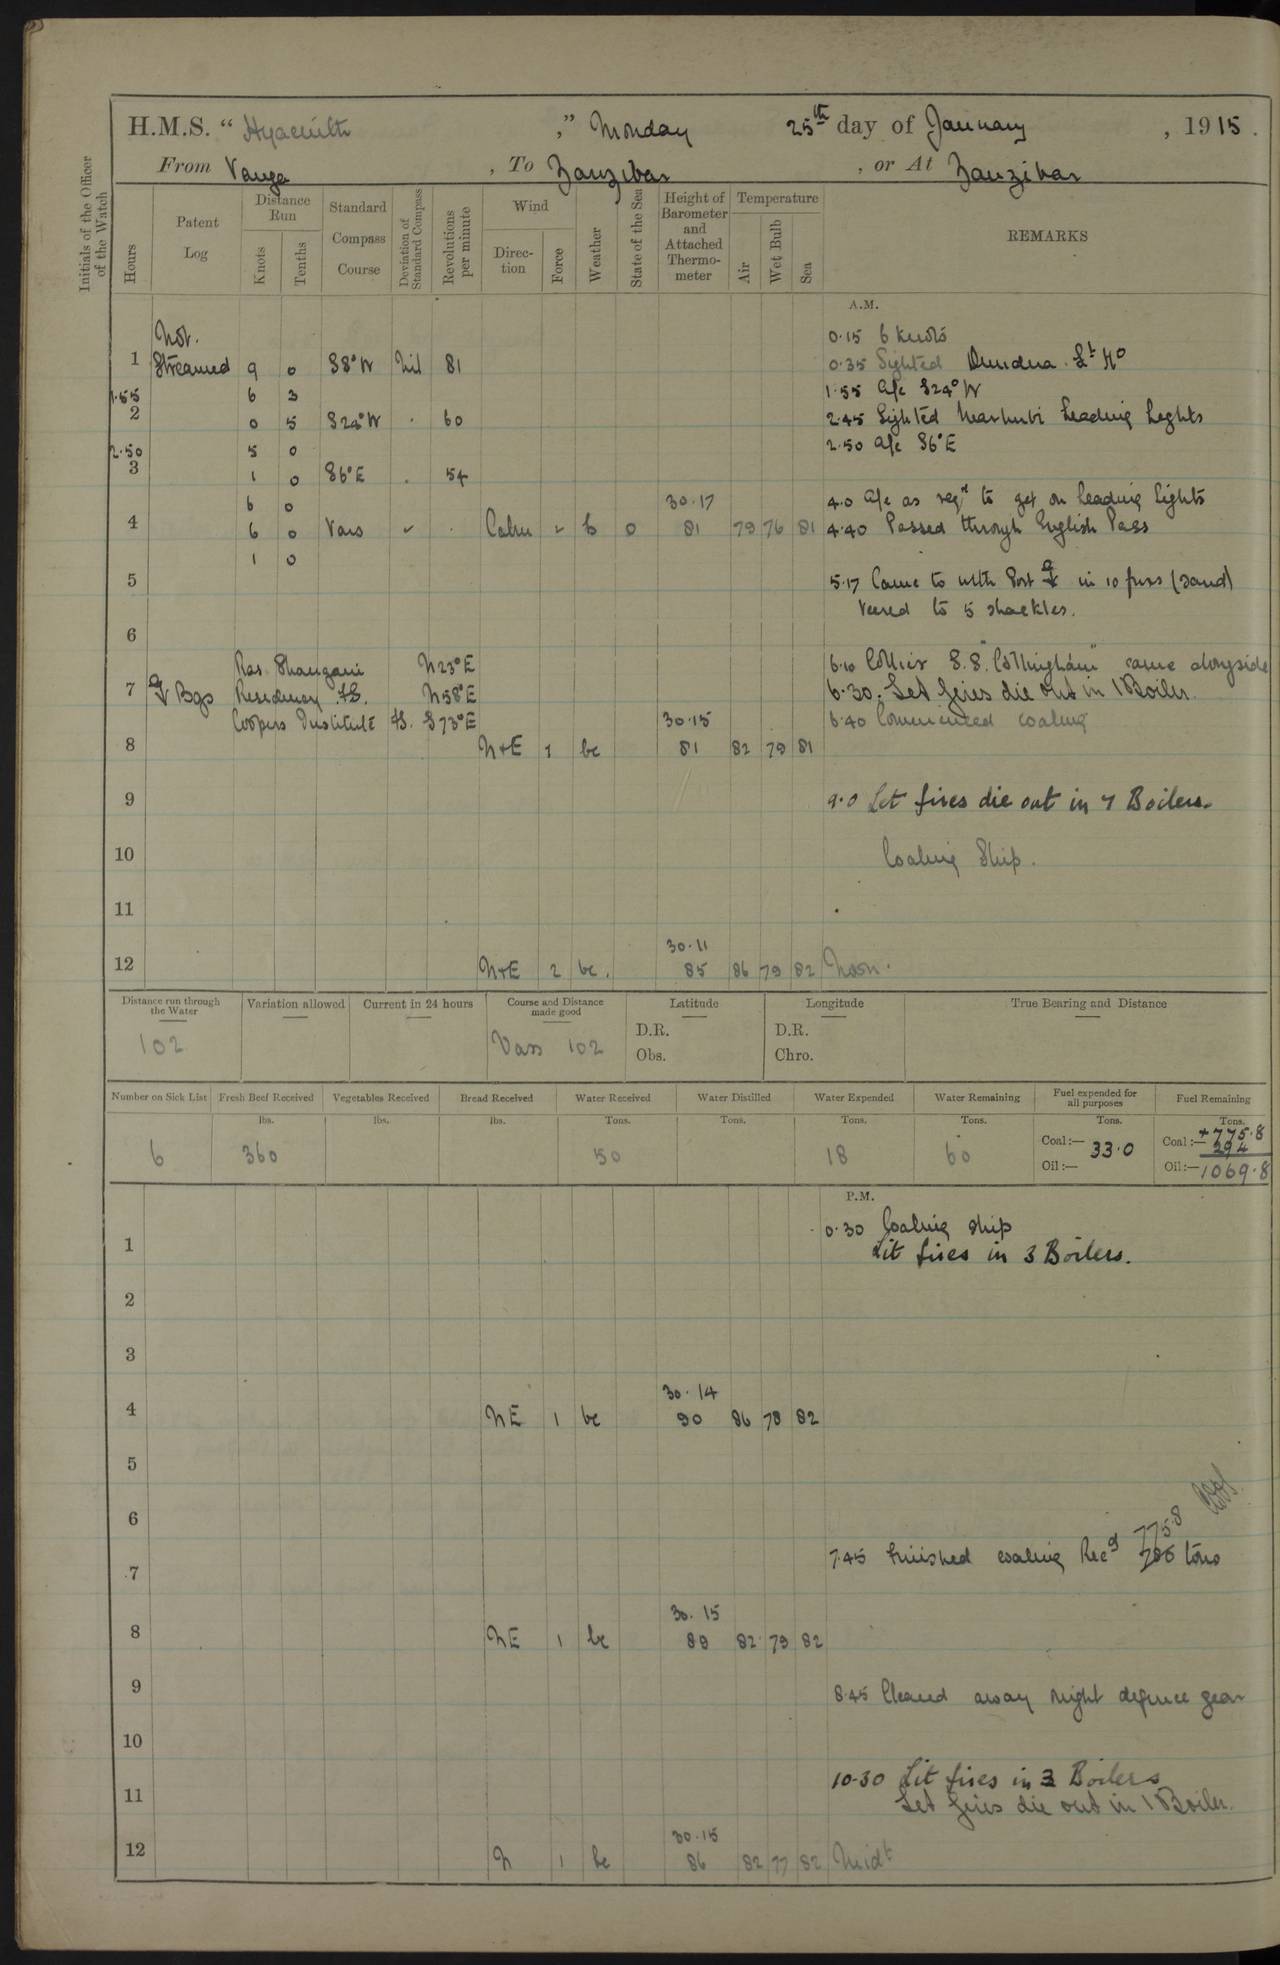 H.M.S. “ Hyacinth ,” Monday 25th day of January , 1915 .
From Vanga , To Zanzibar , or At Zanzibar
Initials of the Officer of the Watch
Hours
Patent Log
Distance Run
Knots
Tenths
Standard Compass Course
Deviation of Standard Compass
Revolutions per minute
Wind
Direction
Force
Weather
State of the Sea
Height of Barometer and Attached Thermometer
Temperature
Air
Wet Bulb
Sea
REMARKS
A.M.
Not. 0.15 6 knots
1 Streamed 9 0 S8°W Nil 81 0.35 Sighted Lt Ho
1.55 6 3 1.55 A/c S24°W
2 0 5 S24°W . 60 2.45 Sighted Marhubi Leading Lights
2.50 5 0 2.50 A/c S6°E
3 1 0 S6°E . 54
6 0 30.17 4.0 A/c as reqd to get on leading lights
4 6 0 Vars Calm b 0 81 79 76 81 4.40 Passed through English Pass
1 0
5 5.17 Came to with Port in 10 fms (sand)
veered to 5 shackles.
6
Ras Shangani N23°E 6.10 Collier S.S. "Cottingham" came alongside
7 Bgs Residency FS. N58°E 6.30. Let fires die out in 1 Boiler.
Coopers Institute FS. S73°E 30.15 6.40 Commenced coaling
8 N+E 1 bc 81 82 79 81
9 9.0 Let fires die out in 7 Boilers.
10 Coaling Ship.
11
30.11
12 N+E 2 bc. 85 86 79 82 Noon.
Distance run through the Water
Variation allowed
Current in 24 hours
Course and Distance made good
Latitude
Longitude
True Bearing and Distance
102 Vars 102
D.R. D.R.
Obs. Chro.
Number on Sick List
Fresh Beef Received
Vegetables Received
Bread Received
Water Received
Water Distilled
Water Expended
Water Remaining
Fuel expended for all purposes
Fuel Remaining
lbs. lbs. lbs. Tons. Tons. Tons. Tons. Tons. Tons.
6 360 50 18 60 Coal :— 33.0 Coal :— +775.8
294
Oil :— Oil :— 1069.8
P.M.
0.30 Coaling ship
1 Lit fires in 3 Boilers.
2
3
30.14
4 NE 1 bc 90 86 78 82
5
6
775.8
7.45 Finished coaling Recd 786 tons
7
30.15
8 NE 1 bc 89 82 79 82
9 8.45 Cleared away night defence gear
10
10.30 Lit fires in 3 Boilers
11 Let fires die out in 1 Boiler.
30.15
12 N 1 bc 86 82 77 82 Midt